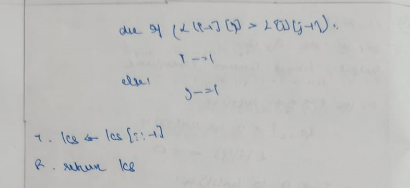 else if (L[i-1][j] > L[i][j-1]).
i -= 1
else:
j -= 1
7. lcs ← lcs[::-1]
8. return lcs